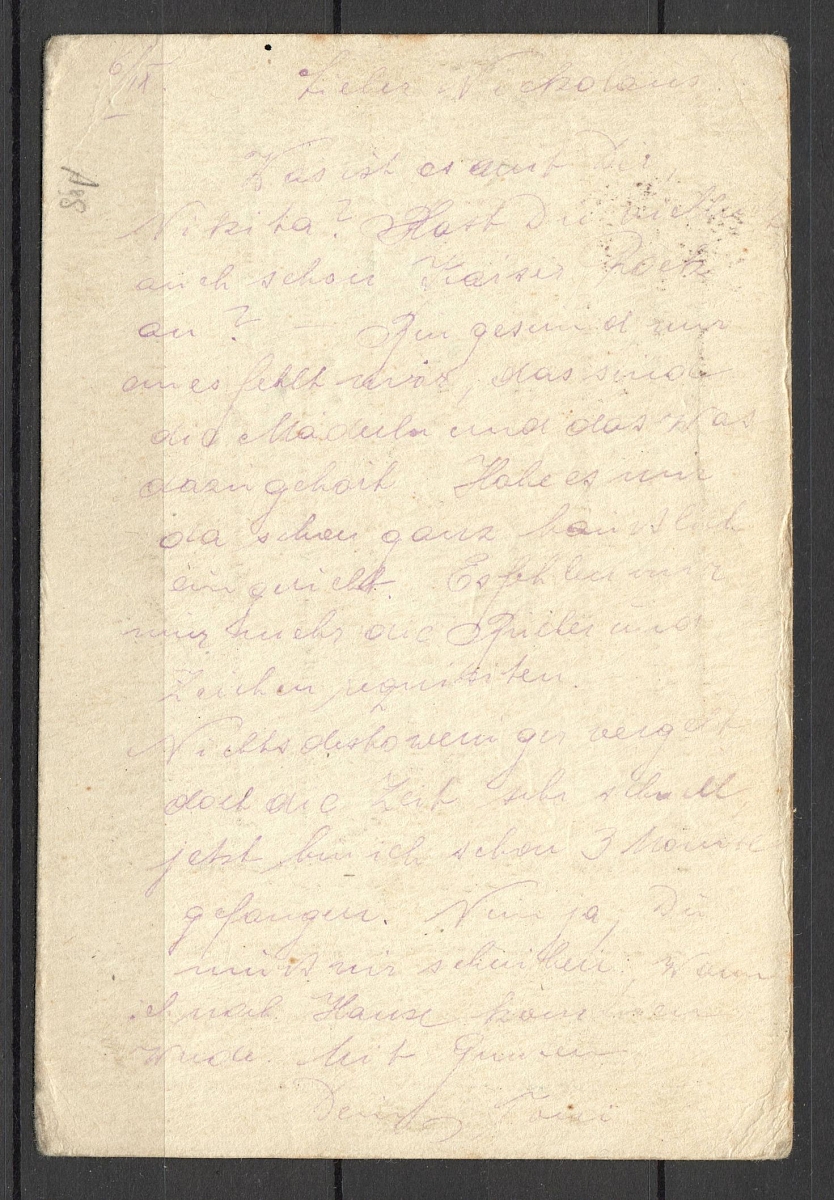 6/IX.
Lieber Nickolaus.
Was ist es mit Dir,
Nikita? Hast Du
auch schon Kaiser Rock
an? – Bin gesund nur
eines fehlt mir, das sind
die Maderln und das was
dazu gehört. Habe es mir
da schon ganz häuslich
eingericht. Es fehlen mir
nur mehr die Bücher und
Zeichen requisiten.
Nichtsdestoweniger vergeht
doch die Zeit sehr schnell
jetzt bin ich schon 3 Monate
gefangen. Nun ja, Du
mußt mir schreiben, wann
ich nach Hause kommen
werde. Mit
Dein Toni